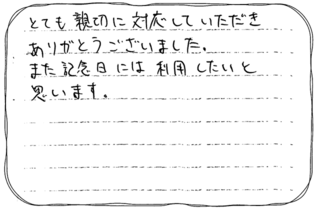 とても親切に対応していただき
ありがとうございました。
また記念日には利用したいと
思います。